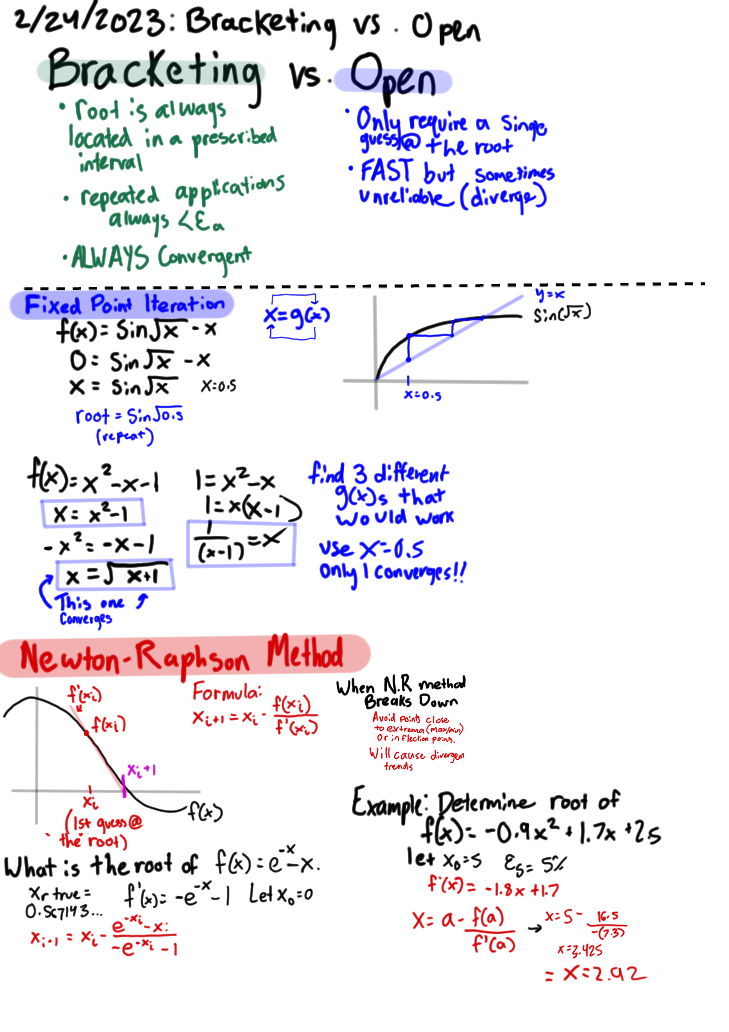 2/24/2023: Bracketing vs. Open
Bracketing vs. Open
• root is always
located in a prescribed
interval
• repeated applications
always < εa
• ALWAYS Convergent
• Only require a single
guess @ the root
• FAST but sometimes
unreliable (diverge)
Fixed Point Iteration
f(x) = sin√x - x
0 = sin√x - x
x = sin√x x=0.5
root = sin√0.5
(repeat)
x = g(x)
y=x
sin(√x)
x=0.5
f(x) = x² - x - 1
x = x² - 1
-x² = -x - 1
x = √x+1
This one
converges
1 = x² - x
1 = x(x-1)
1/(x-1) = x
find 3 different
g(x)s that
would work
use x=0.5
only 1 converges!!
Newton-Raphson Method
f'(xi)
f(xi)
xi+1
xi
f(x)
(1st guess @
the root)
Formula:
xi+1 = xi - f(xi)/f'(xi)
When N.R method
Breaks Down
Avoid points close
to extrema (max/min)
or inflection points.
Will cause divergent
trends
What is the root of f(x) = e^-x - x.
xr true =
0.567143...
f'(x) = -e^-x - 1 Let x₀=0
xi+1 = xi - (e^-xi - xi)/(-e^-xi - 1)
Example: Determine root of
f(x) = -0.9x² + 1.7x + 2.5
let x₀=5 εs = 5%
f'(x) = -1.8x + 1.7
x = a - f(a)/f'(a) → x = 5 - 16.5/-(7.3)
x=3.425
= x = 2.92